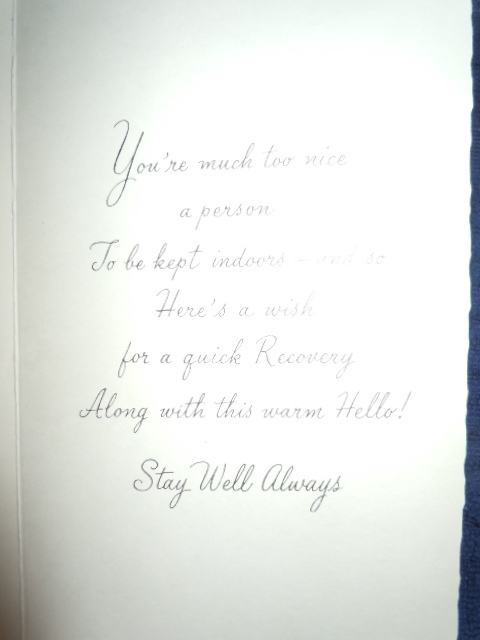 You're much too nice
a person
To be kept indoors – and so
Here's a wish
for a quick Recovery
Along with this warm Hello!
Stay Well Always